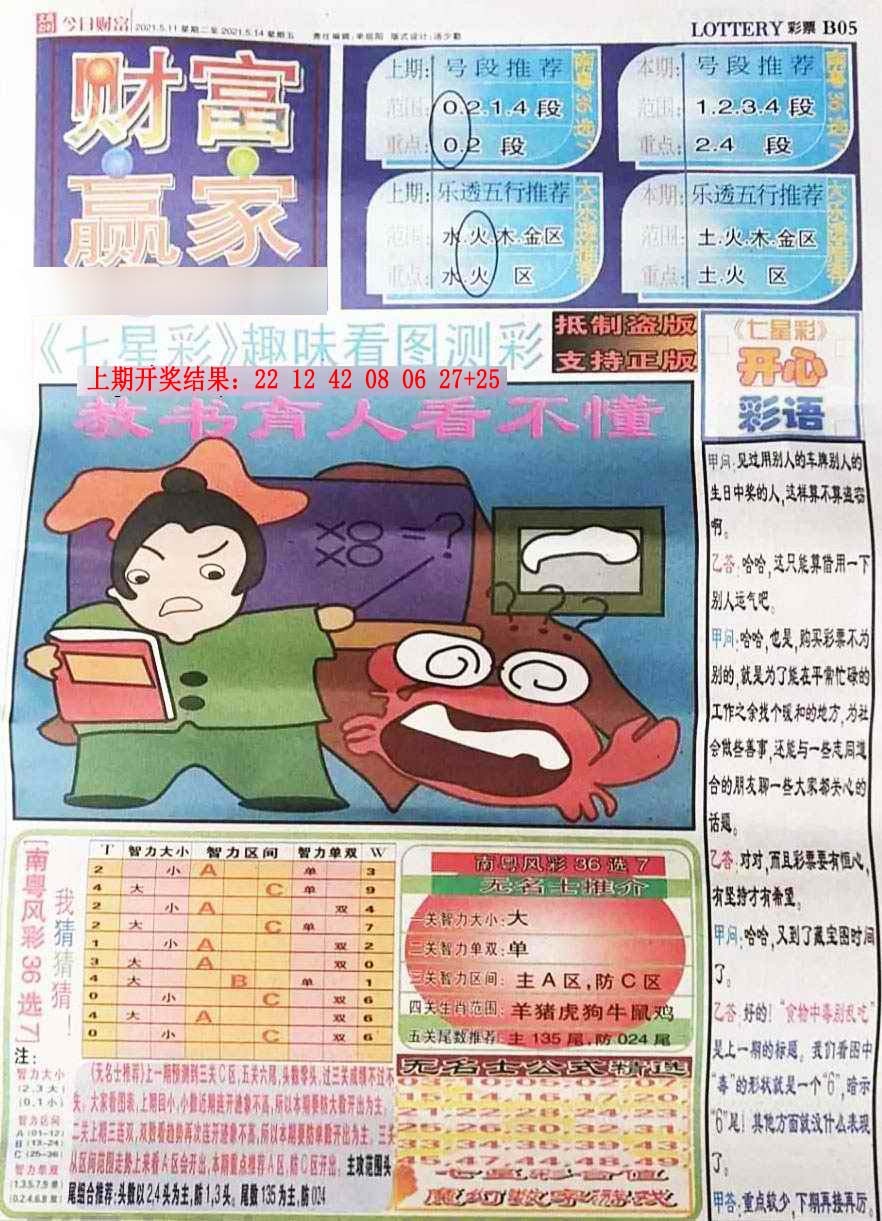 今日财富 2021.5.11 星期二至 2021.5.14 星期五 责任编辑: 版式设计:
LOTTERY 彩票 B05
财富
赢家
上期: 号段推荐
范围: 0.2.1.4 段
重点: 0.2 段
本期: 号段推荐
范围: 1.2.3.4 段
重点: 2.4 段
上期: 乐透五行推荐
范围: 水.火.木.金区
重点: 水.火 区
本期: 乐透五行推荐
范围: 土.火.木.金区
重点: 土.火 区
《七星彩》趣味看图测彩
抵制盗版
支持正版
上期开奖结果: 22 12 42 08 06 27+25
教书育人看不懂
XO
XO
= ?
《七星彩》
开心
彩语
甲问:见过用别人的车牌别人的
生日中奖的人,这样算不算盗窃
啊。
乙答:哈哈,这只能算借用一下
别人运气吧。
甲问:哈哈,也是,购买彩票不为
别的,就是为了能在平常忙碌的
工作之余找个暖和的地方,为社
会做些善事,还能与一些志同道
合的朋友聊一些大家都关心的
话题。
乙答:对对,而且彩票要有恒心,
有坚持才有希望。
甲问:哈哈,又到了藏宝图时间
了。
乙答:好的!“食物中毒别乱吃”
是上一期的标题。我们看图中
“毒”的形状就是一个“6”,暗示
“6”尾!其他方面就没什么表现
了。
甲答:重点较少,下期再接再厉。
[南粤风彩36选7]
我猜猜猜!
T 智力大小 智力区间 智力单双 W
2 小 A 单 3
4 大 C 单 9
2 小 A 双 4
2 大 C 单 7
1 小 A 双 2
3 大 A 双 0
4 大 B 单 1
0 小 C 双 6
4 大 A 双 6
0 小 C 双 6
南粤风彩36选7
无名士推介
一关智力大小:大
二关智力单双:单
三关智力区间: 主A区,防C区
四关生肖范围: 羊猪虎狗牛鼠鸡
五关尾数推荐: 主135尾,防024尾
注:
智力大小
(2.3大)
(0.1小)
智力区间
A (01-12)
B (13-24)
C (25-36)
智力单双
(1.3.5.7.9单)
(0.2.4.6.8双)
《无名士推荐》上一期预测到三关C区,五关六尾,头数零头,过三关成绩不过不
失。大家看图表,上期回小,小数近期连开迹象不高,所以本期要防大数开出为主,
二关上期三连双,双数看趋势再次连开迹象不高,所以本期要防单数开出为主,三关
从区间范围走势上来看A区会开出,本期重点推荐A区,防C区开出。主攻范围头
尾组合推荐:头数以2,4头为主,防1,3头。尾数135为主,防024
无名士公式精选
03.10.05.02.07
15.14.16.17.20.
21.22.28.24.23
45.47.44.49.48
七星彩合值
魔幻数字游戏